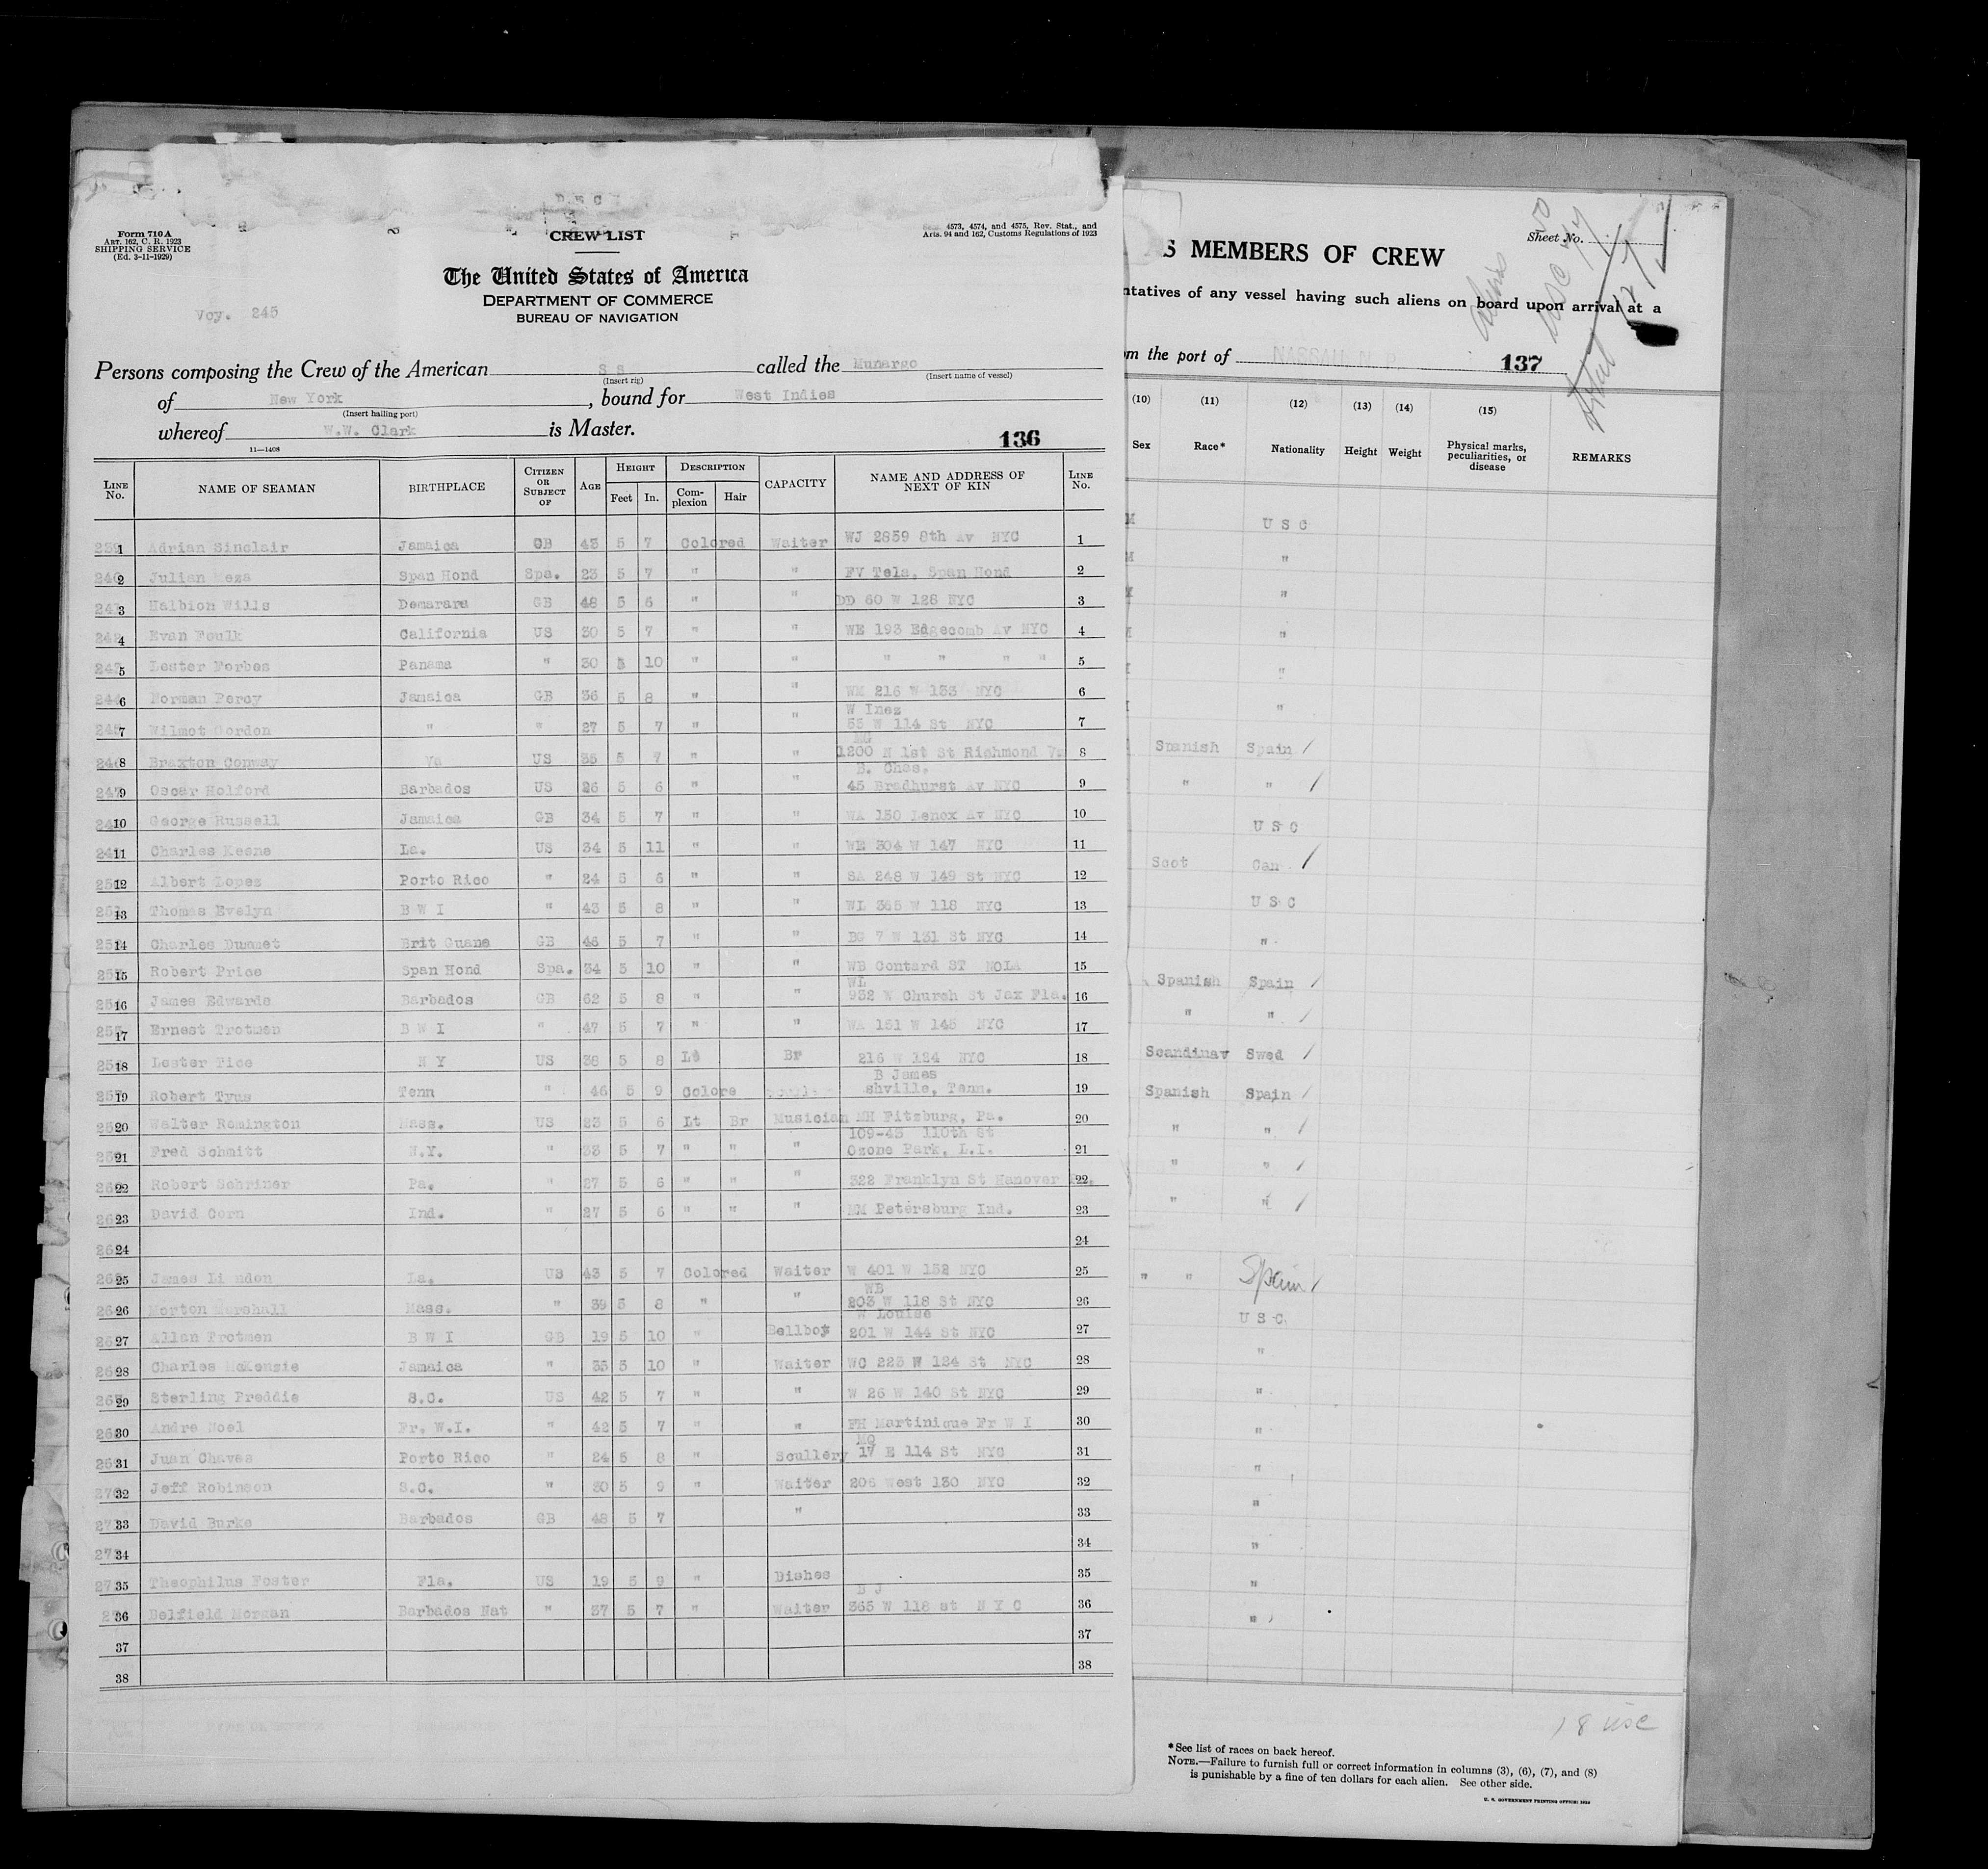 Form 710 A
Art. 162, C. R. 1923
SHIPPING SERVICE
(Ed. 3-11-1929)
CREW LIST
4573, 4574, and 4575, Rev. Stat., and
Arts. 94 and 162, Customs Regulations of 1923
The United States of America
DEPARTMENT OF COMMERCE
BUREAU OF NAVIGATION
Voy. 245
Persons composing the Crew of the American S S called the Munargo
(Insert rig) (Insert name of vessel)
of New York, bound for West Indies
(Insert hailing port)
whereof W.W. Clark is Master.
11—1408
136
LINE No. NAME OF SEAMAN BIRTHPLACE CITIZEN OR SUBJECT OF AGE HEIGHT Feet In. DESCRIPTION Complexion Hair CAPACITY NAME AND ADDRESS OF NEXT OF KIN LINE No.
1 Adrian Sinclair Jamaica GB 43 5 7 Colored Waiter WJ 2859 8th Av NYC 1
2 Julian Meza Span Hond Spa. 23 5 7 " " FV Tela, Span Hond 2
3 Halbion Wills Demarara GB 48 5 6 " " DD 60 W 128 NYC 3
4 Evan Foulk California US 30 5 7 " " WE 193 Edgecomb Av NYC 4
5 Lester Forbes Panama " 30 5 10 " " " " " " 5
6 Norman Percy Jamaica GB 36 5 8 " " WM 216 W 133 NYC 6
7 Wilmot Gordon " " 27 5 7 " " W Inez 55 W 114 St NYC 7
8 Braxton Conway Va US 35 5 7 " " MG 1200 N 1st St Richmond Va 8
9 Oscar Holford Barbados US 26 5 6 " " B. Chas. 45 Bradhurst Av NYC 9
10 George Russell Jamaica GB 34 5 7 " " WA 150 Lenox Av NYC 10
11 Charles Keene La. US 34 5 11 " " WE 304 W 147 NYC 11
12 Albert Lopes Porto Rico " 24 5 6 " " SA 248 W 149 St NYC 12
13 Thomas Evelyn B W I " 43 5 8 " " WL 365 W 118 NYC 13
14 Charles Dummet Brit Guana GB 46 5 7 " " DG 7 W 131 St NYC 14
15 Robert Price Span Hond Spa. 34 5 10 " " WB Contard ST NOLA 15
16 James Edwards Barbados GB 62 5 8 " " WL 932 W Church St Jax Fla. 16
17 Ernest Trotman B W I " 47 5 7 " " WA 151 W 145 NYC 17
18 Lester Tice N Y US 38 5 8 Lt Br 216 W 124 NYC 18
19 Robert Tyus Tenn " 46 5 9 Colore B James shville, Tenn. 19
20 Walter Romington Mass. US 23 5 6 Lt Br Musician MH Fitzburg, Pa. 20
21 Fred Schmitt N.Y. " 33 5 7 " " " 109-43 110th St Ozone Park, L.I. 21
22 Robert Schriner Pa. " 27 5 6 " " " 322 Franklyn St Hanover 22
23 David Corn Ind. " 27 5 6 " " " MM Petersburg Ind. 23
24 24
25 James Lindon La. US 43 5 7 Colored Waiter W 401 W 152 NYC 25
26 Morton Marshall Mass. " 39 5 8 " " WB 203 W 118 St NYC 26
27 Allan Trotman B W I GB 19 5 10 " Bellboy W Louise 201 W 144 St NYC 27
28 Charles McKensie Jamaica " 35 5 10 " Waiter WC 223 W 124 St NYC 28
29 Sterling Preddie S.C. US 42 5 7 " " W 26 W 140 St NYC 29
30 Andre Noel Fr. W.I. " 42 5 7 " " FH Martinique Fr W I 30
31 Juan Chaves Porto Rico " 24 5 8 " Scullery MQ 17 E 114 St NYC 31
32 Jeff Robinson S.C. " 30 5 9 " Waiter 206 West 130 NYC 32
33 David Burke Barbados GB 48 5 7 " 33
34 34
35 Theophilus Foster Fla. US 19 5 9 " Dishes 35
36 Belfield Morgan Barbados Nat " 37 5 7 " Waiter B J 365 W 118 st N Y C 36
37 37
38 38
S MEMBERS OF CREW
Sheet No.
ntatives of any vessel having such aliens on board upon arrival at a
om the port of NASSAU N.P. 137
Aliens 50
USC 77
Total 127
(10) (11) (12) (13) (14) (15)
Sex Race* Nationality Height Weight Physical marks, peculiarities, or disease REMARKS
M U S C
M "
M "
"
"
"
Spanish Spain /
" " /
U S C
Scot Can. /
U S C
"
Spanish Spain /
" " /
Scandinav Swed /
Spanish Spain /
" " /
" " /
" " /
" " Spain /
U S C
"
"
"
"
"
"
"
"
18 USC
*See list of races on back hereof.
NOTE.—Failure to furnish full or correct information in columns (3), (6), (7), and (8)
is punishable by a fine of ten dollars for each alien. See other side.
U. S. GOVERNMENT PRINTING OFFICE